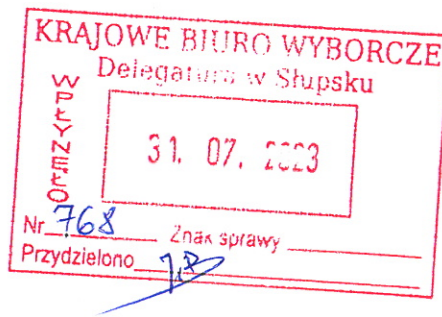 KRAJOWE BIURO WYBORCZE
Delegatura w Słupsku
WPŁYNĘŁO
31. 07. 2023
Nr 768 Znak sprawy
Przydzielono J.B